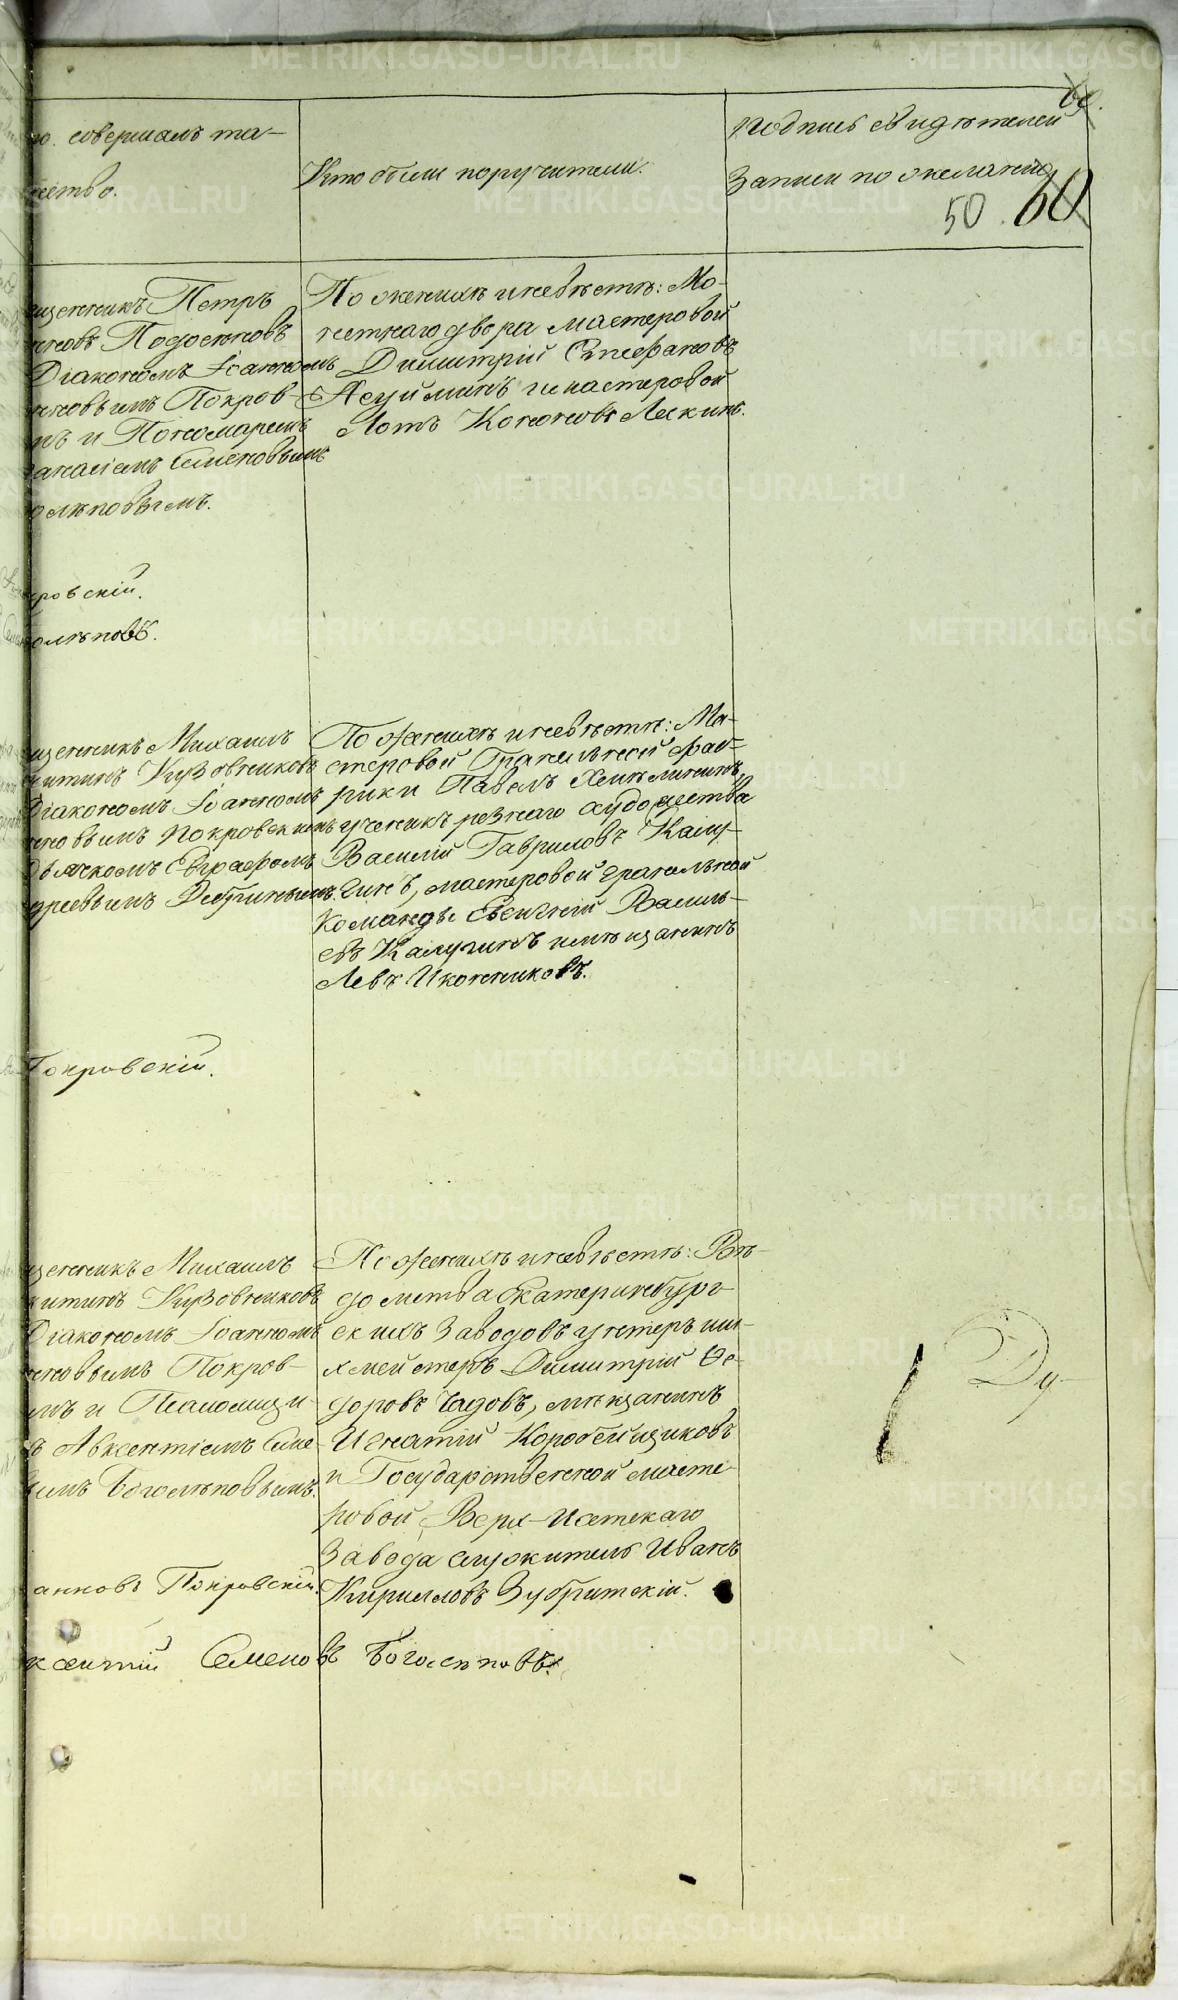 60.
то. совершалъ та-
инство.
Кто были поручители.
Подпись свидѣтелей
записи по желанію
50. 60
щенникъ Петръ
нновъ Подосеновъ
Діакономъ Іоанномъ
нновымъ Покров-
мъ и Пономаремъ
анасіемъ Семеновымъ
олѣповымъ.
ровскій.
олѣповъ.
По женихѣ и невѣстѣ: Мо-
нетнаго двора мастеровой
Димитрій Стефановъ
мастеровой
Лотъ Кононовъ Лекинъ.
щенникъ Михаилъ
китинъ Кузовниковъ
Діакономъ Іоанномъ
нновымъ Покровскимъ
Дьячкомъ Евграфомъ
дреевымъ
По женихѣ и невѣстѣ: Ма-
стеровой Гранильной фаб-
рики Павелъ Хмѣлининъ,
ученикъ рѣзнаго художества
Василій Гавриловъ Калу-
гинъ, мастеровой гранильной
Команды Евгеній Василь-
евъ Калугинъ и мѣщанинъ
Левъ Иконниковъ.
Покровскій.
щенникъ Михаилъ
китинъ Кузовниковъ
Діакономъ Іоанномъ
нновымъ Покров-
мъ и Псаломщи-
ъ Авксентіемъ Семе-
вымъ Боголѣповымъ.
По женихѣ и невѣстѣ: Вѣ-
домства Екатеринбург-
скихъ Заводовъ унтеръ ших-
хмейстеръ Димитрій Ѳе-
доровъ Чадовъ, мѣщанинъ
Игнатій Коробейщиковъ
и Государственной масте-
ровой Верх-Исетскаго
Завода служитель Иванъ
Кирилловъ Зубритскій.
Ду-
анновъ Покровскій.
ксентій Семеновъ Боголѣповъ.
METRIKI.GASO-URAL.RU